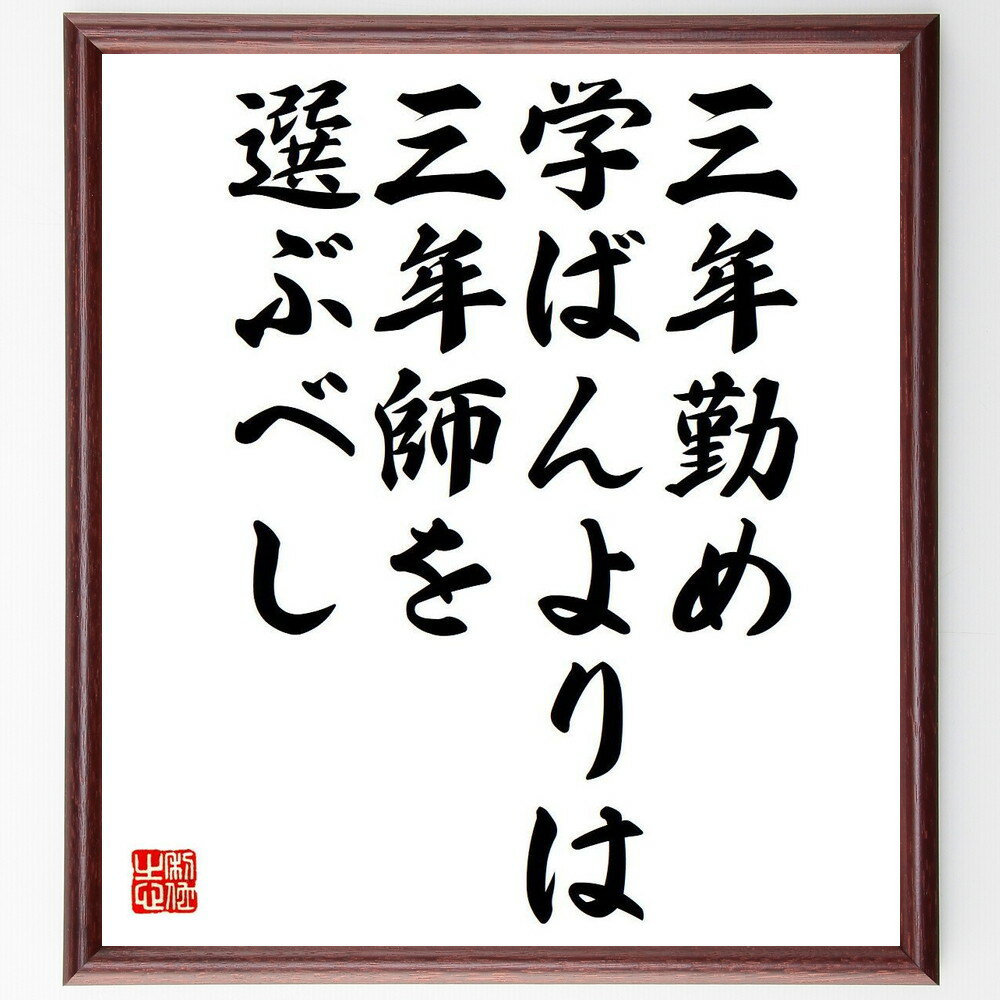 三年勤め
学ばんよりは
三年師を
選ぶべし